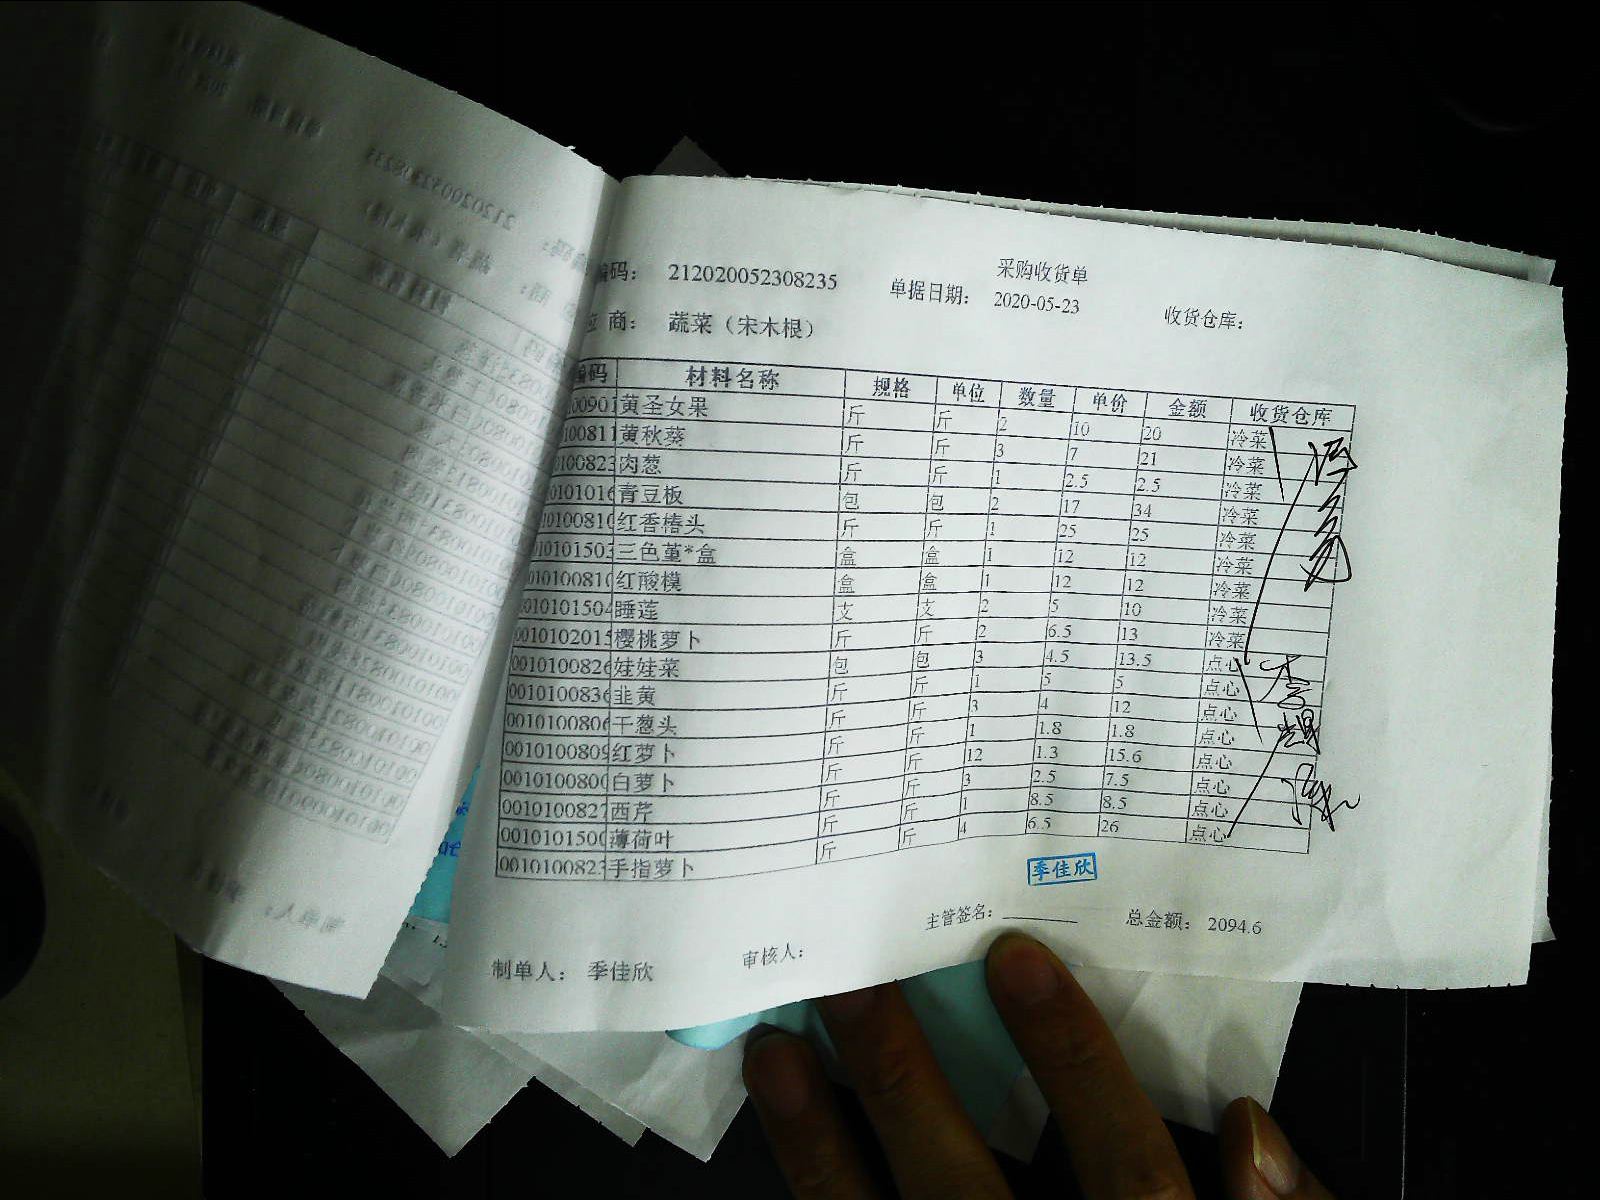 采购收货单
编码： 212020052308235 单据日期： 2020-05-23 收货仓库：
应 商： 蔬菜（宋木根）
编码 材料名称 规格 单位 数量 单价 金额 收货仓库
00901 黄圣女果 斤 斤 2 10 20 冷菜
100811 黄秋葵 斤 斤 3 7 21 冷菜
100823 肉葱 斤 斤 1 2.5 2.5 冷菜
0101016 青豆板 包 包 2 17 34 冷菜
10100810 红香椿头 斤 斤 1 25 25 冷菜
10101503 三色堇*盒 盒 盒 1 12 12 冷菜
010100810 红酸模 盒 盒 1 12 12 冷菜
010101504 睡莲 支 支 2 5 10 冷菜
0010102015 樱桃萝卜 斤 斤 2 6.5 13 冷菜
0010100826 娃娃菜 包 包 3 4.5 13.5 点心
0010100836 韭黄 斤 斤 1 5 5 点心
0010100806 干葱头 斤 斤 3 4 12 点心
0010100809 红萝卜 斤 斤 1 1.8 1.8 点心
0010100800 白萝卜 斤 斤 12 1.3 15.6 点心
0010100827 西芹 斤 斤 3 2.5 7.5 点心
0010101500 薄荷叶 斤 斤 1 8.5 8.5 点心
001010082 手指萝卜 斤 斤 4 6.5 26 点心
季佳欣
制单人： 季佳欣 审核人： 主管签名： 总金额： 2094.6